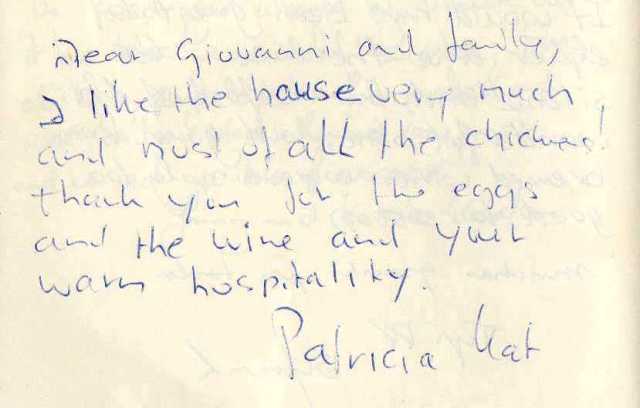 Dear Giovanni and family,
I like the house very much,
and most of all the chickens!
thank you for the eggs
and the wine and your
warm hospitality.
Patricia Kat